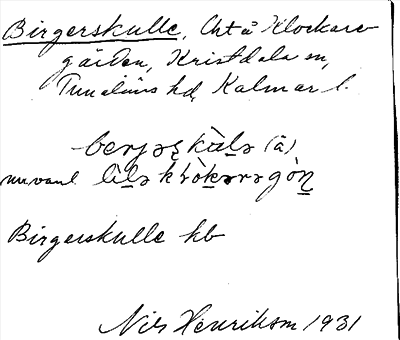 Birgerskulle, Cht å Klockare-
gården, Kristdala sn,
Tunaläns hd, Kalmar l.
berjəʂkùl̠ə (â)
nu vanl lìl̠ə klòk̠ərəgòn̠
Birgerskulle kb
Nils Henrikson 1931